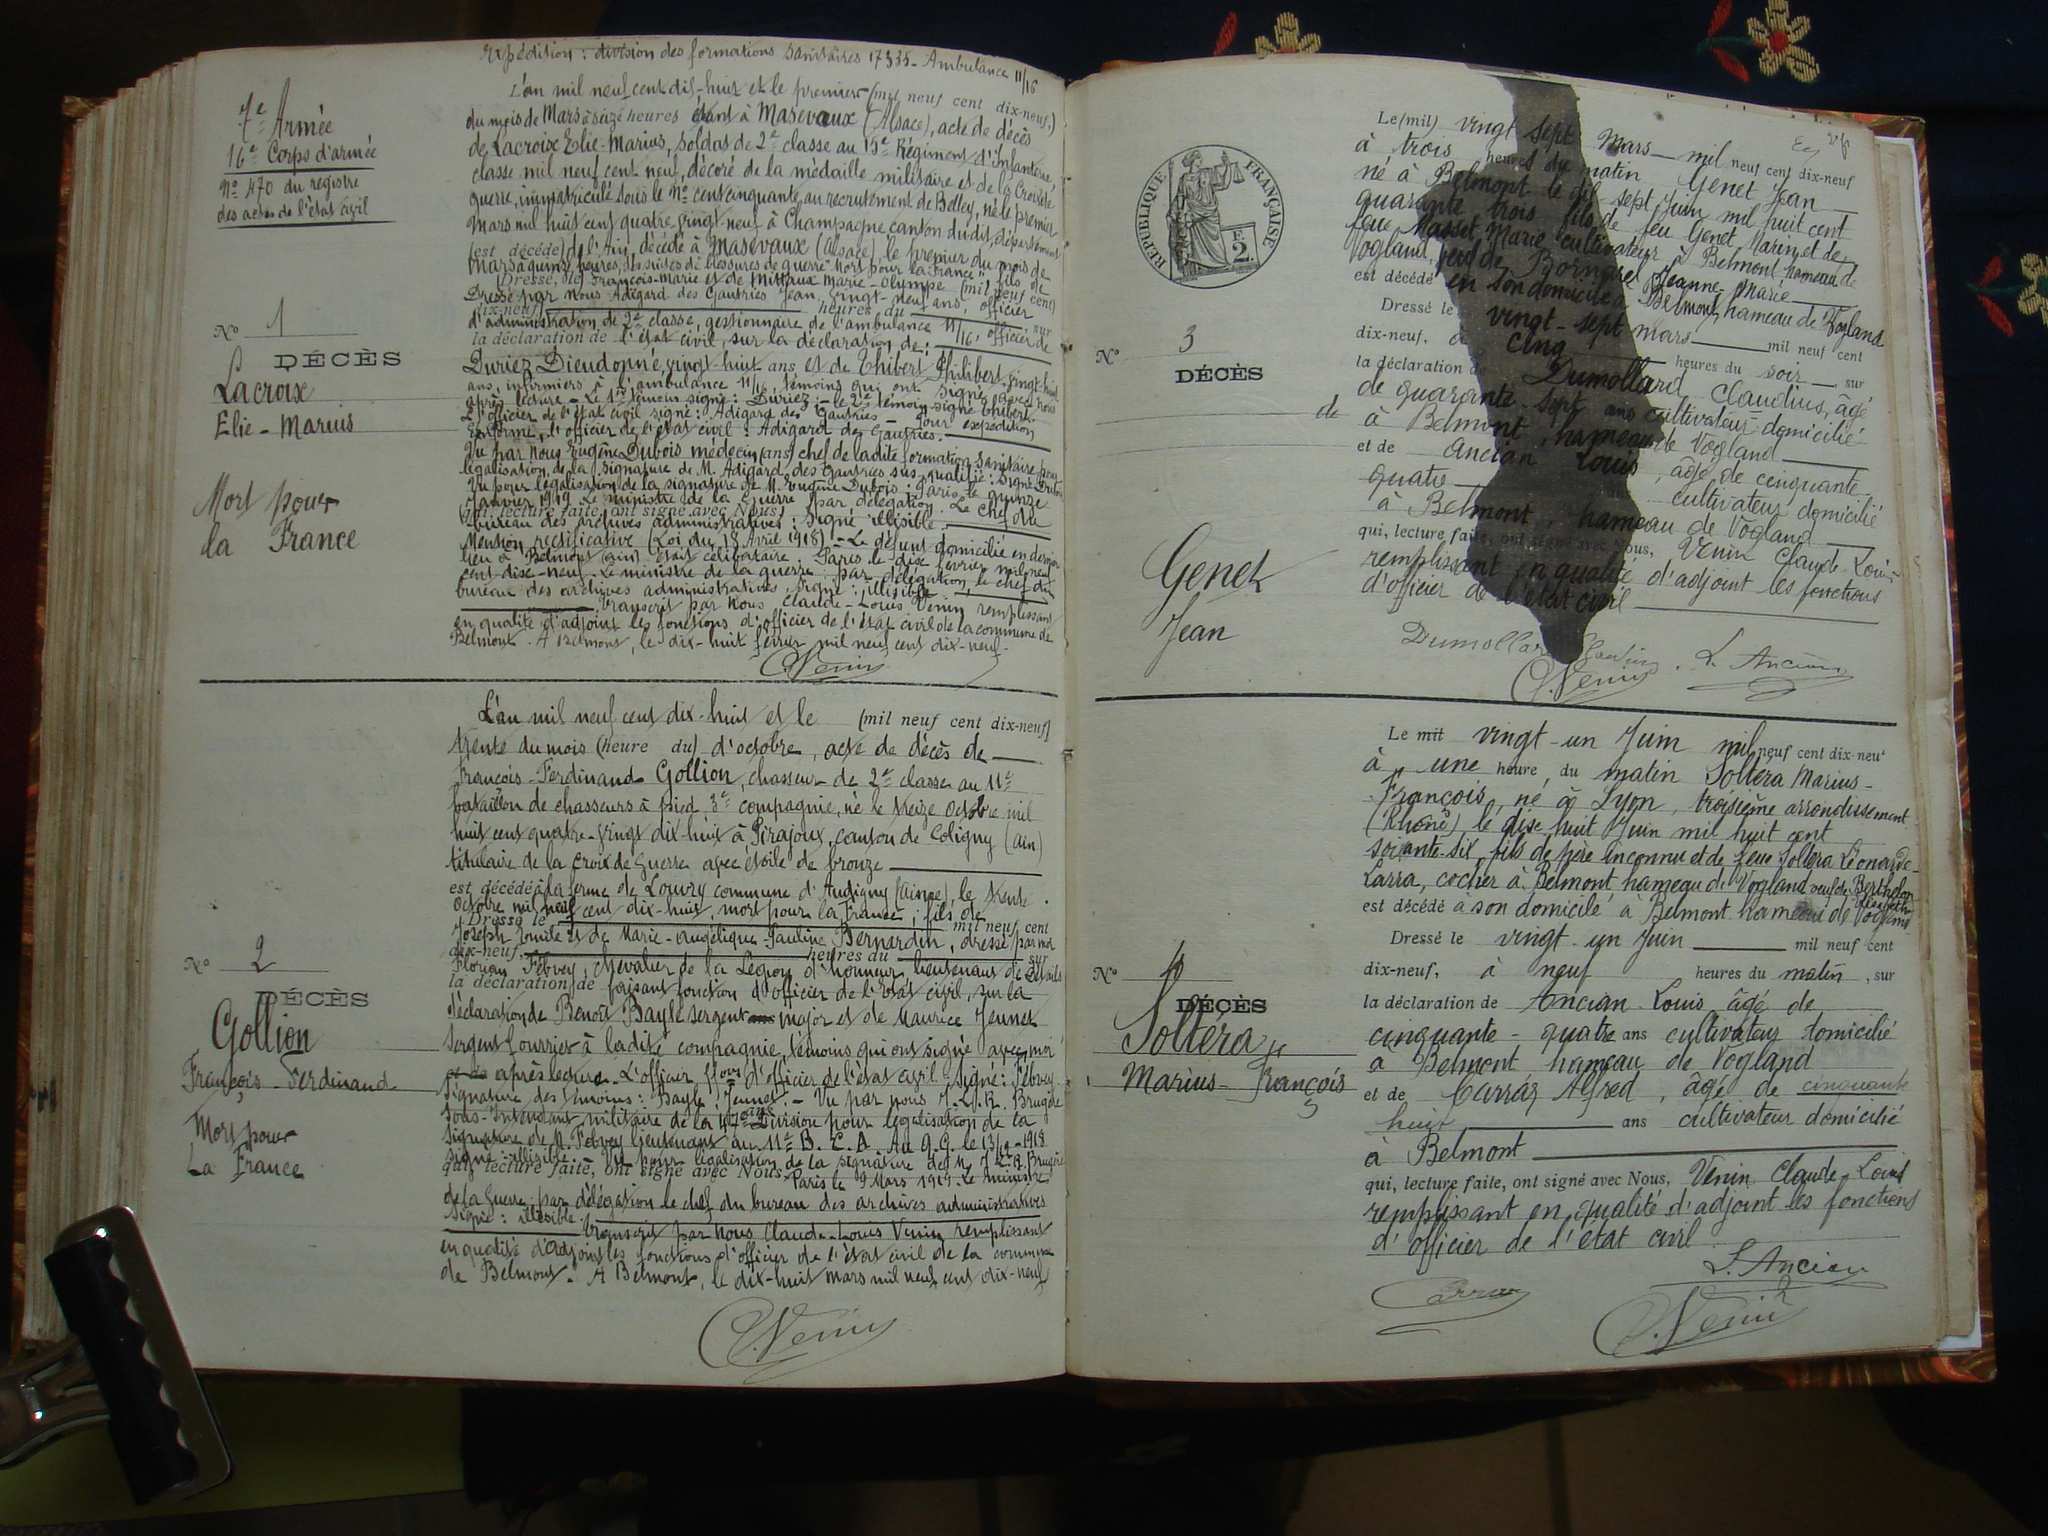 Expédition : division des formations sanitaires 17335 - Ambulance 11/16
7e Armée
16e Corps d'armée
No 470 du registre
des actes de l'état civil
No 1
DÉCÈS
Lacroix
Elie - Marius
Mort pour
la France
L'an mil neuf cent dix-huit et le premier (mil neuf cent dix-neuf,)
du mois de Mars à seize heures étant à Masevaux (Alsace), acte de décès
de Lacroix Elie-Marius, soldat de 2e classe au 15e Régiment d'Infanterie,
classe mil neuf cent neuf, décoré de la médaille militaire et de la Croix de
guerre, immatriculé sous le No cent cinquante au recrutement de Belley, né le premier
Mars mil huit cent quatre vingt neuf à Champagne canton du dit, département
(est décédé) de l'Ain, décédé à Masevaux (Alsace), le premier du mois de
Mars à quinze heures, des suites de blessures de guerre "Mort pour la France" fils de
Dressé, le François-Marie et de Mittaux Marie-Olympe (mil neuf cent
Dressé par Nous Adigard des Gautries Jean, vingt-neuf ans, officier
dix-neuf heures du sur
d'administration de 2e classe, gestionnaire de l'ambulance 11/16, officier de
la déclaration de l'état civil, sur la déclaration de :
Duriez Dieudonné, vingt huit ans et de Thibert Philibert, vingt huit
ans, infirmiers à l'ambulance 11/16, témoins qui ont signé avec nous
après lecture - Le 1er témoin signé : Duriez - le 2e témoin signé Thibert.
L'officier de l'état civil signé : Adigard des Gautries - Pour expédition
conforme, l'officier de l'état civil : Adigard des Gautries. -
Vu par Nous Eugène Dubois médecin (ans) chef de ladite formation sanitaire pour
légalisation de la signature de M. Adigard des Gautries sus qualifié : signé Dubois
Vu pour légalisation de la signature de M. Eugène Dubois : Paris le quinze
Janvier 1919 Le ministre de la Guerre par délégation. Le chef du
qui, lecture faite, ont signé avec Nous,
bureau des archives administratives : signé illisible.
Mention rectificative (Loi du 18 Avril 1918) - Le défunt domicilié en dernier
lieu à Belmont (Ain) était célibataire. Paris le dix février mil neuf
cent dix-neuf. Le ministre de la guerre par délégation, le chef du
bureau des archives administratives, signé : illisible
Transcrit par Nous Claude-Louis Venin, remplissant
en qualité d'adjoint les fonctions d'officier de l'état civil de la commune de
Belmont. A Belmont, le dix-huit février mil neuf cent dix-neuf.
C. Venin
No 2
DÉCÈS
Gollion
François - Ferdinand
Mort pour
La France
L'an mil neuf cent dix-huit et le (mil neuf cent dix-neuf)
trente du mois (heure du) d'octobre, acte de décès de
François-Ferdinand Gollion, chasseur de 2e classe au 11e
bataillon de chasseurs à pied 3e compagnie, né le treize octobre mil
huit cent quatre-vingt dix-huit à Pirajoux, canton de Coligny (Ain)
titulaire de la Croix de Guerre avec étoile de bronze
est décédé à la ferme de Louvry commune d'Audigny (Aisne), le trente
octobre mil neuf cent dix-huit, mort pour la France ; fils de
Dressé le mil neuf cent
Joseph Emile et de Marie-Angélique-Pauline Bernardin, dressé par moi
dix-neuf, heures du sur
Florian Febvey, chevalier de la Légion d'honneur, lieutenant de détails
la déclaration de faisant fonction d'officier de l'Etat civil, sur la
déclaration de Benoît Bayle sergent major et de Maurice Jeunet
sergent fourrier à ladite compagnie, témoins qui ont signé avec moi
et de après lecture. L'officier ffons d'officier de l'état civil : signé : Febvey.
Signature des témoins : Bayle, Jeunet. - Vu par nous J.L.R. Brugère
Sous-Intendant militaire de la 47e Division pour légalisation de la
signature de M. Febvey lieutenant au 11e B.C.A. Au Q.G. le 1918
signé : illisible. Vu pour légalisation de la signature de M. J.L.R. Brugère
qui, lecture faite, ont signé avec Nous, Paris le 9 Mars 1919. Le ministre
de la Guerre par délégation le chef du bureau des archives administratives
signé : illisible. Transcrit par Nous Claude-Louis Venin remplissant
en qualité d'adjoint les fonctions d'officier de l'état civil de la commune
de Belmont. A Belmont, le dix-huit mars mil neuf cent dix-neuf
C. Venin
RÉPUBLIQUE FRANÇAISE
F. 2.
No 3
DÉCÈS
Genet
Jean
Le (mil) vingt sept Mars mil neuf cent dix-neuf
à trois heures du matin Genet Jean
né à Belmont le dix-sept Juin mil huit cent
quarante trois fils de feu Genet Marin et de
feue Masset Marie cultivateur à Belmont hameau de
Vogland, veuf de Bornarel Jeanne-Marie
est décédé en son domicile à Belmont, hameau de Vogland
Dressé le vingt-sept mars mil neuf cent
dix-neuf, à cinq heures du soir, sur
la déclaration de Dumollard Claudius, âgé
de quarante-sept ans cultivateur domicilié
de
à Belmont, hameau de Vogland
et de Ancian Louis, âgé de cinquante
quatre cultivateur domicilié
à Belmont, hameau de Vogland
qui, lecture faite, ont signé avec Nous, Venin Claude-Louis
remplissant en qualité d'adjoint les fonctions
d'officier de l'état civil
Dumollard L. Ancian
C. Venin
No 4
DÉCÈS
Soltéra
Marius-François
Le mil vingt-un Juin mil neuf cent dix-neuf
à une heure, du matin Soltéra Marius-
François, né à Lyon, troisième arrondissement
(Rhône), le dix huit Juin mil huit cent
soixante-six, fils de père inconnu et de feue Soltéra Léonarde-
Larra, cocher à Belmont, hameau de Vogland veuf de Berthelon
est décédé à son domicile à Belmont hameau de Vogland
Dressé le vingt-un Juin mil neuf cent
dix-neuf, à neuf heures du matin, sur
la déclaration de Ancian Louis, âgé de
cinquante-quatre ans cultivateur domicilié
à Belmont hameau de Vogland
et de Carraz Alfred, âgé de cinquante
huit ans cultivateur domicilié
à Belmont
qui, lecture faite, ont signé avec Nous, Venin Claude-Louis
remplissant en qualité d'adjoint les fonctions
d'officier de l'état civil
L. Ancian
Carraz C. Venin